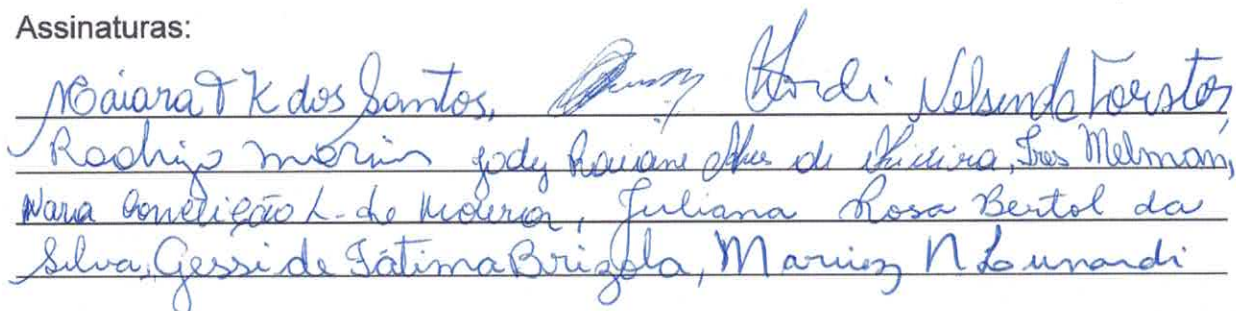 Assinaturas:
Maiara T K dos Santos, Nelsinda Forster,
Rodrigo Morais Jody Raiane Alves de Oliveira, Ires Melman,
Nara Conceição L. de Moura, Juliana Rosa Bertol da
Silva, Gessi de Fátima Brizola, Mariez N Lunardi